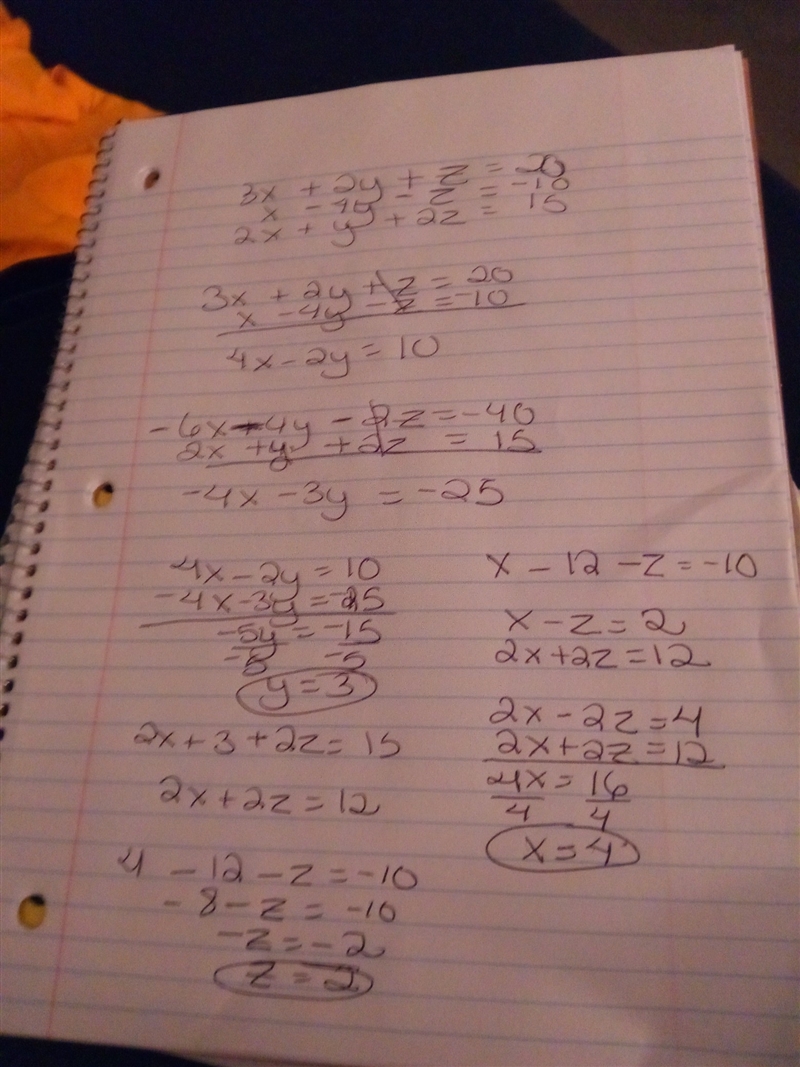 3x + 2y + z = 20
x - 4y - z = -10
2x + y + 2z = 15
3x + 2y + z = 20
x - 4y - z = -10
4x - 2y = 10
-6x - 4y - 2z = -40
2x + y + 2z = 15
-4x - 3y = -25
4x - 2y = 10
-4x - 3y = -25
-5y = -15
-5 -5
y = 3
2x + 3 + 2z = 15
2x + 2z = 12
x - 12 - z = -10
x - z = 2
2x + 2z = 12
2x - 2z = 4
2x + 2z = 12
4x = 16
4 4
x = 4
4 - 12 - z = -10
-8 - z = -10
-z = -2
z = 2